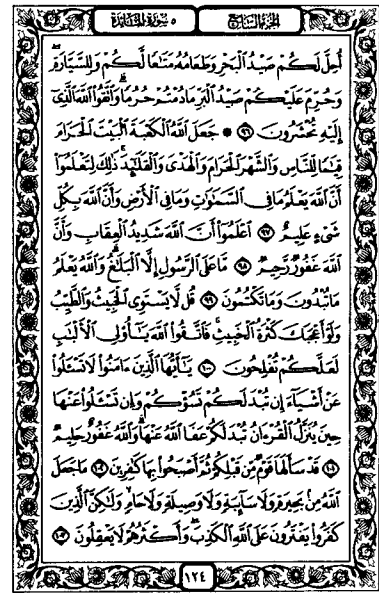 الجزء السابع ٥ سورة المائدة
أُحِلَّ لَكُمْ صَيْدُ ٱلْبَحْرِ وَطَعَامُهُۥ مَتَٰعًا لَّكُمْ وَلِلسَّيَّارَةِۖ
وَحُرِّمَ عَلَيْكُمْ صَيْدُ ٱلْبَرِّ مَا دُمْتُمْ حُرُمًاۗ وَٱتَّقُوا۟ ٱللَّهَ ٱلَّذِىٓ
إِلَيْهِ تُحْشَرُونَ ٩٦ ۞ جَعَلَ ٱللَّهُ ٱلْكَعْبَةَ ٱلْبَيْتَ ٱلْحَرَامَ
قِيَٰمًا لِّلنَّاسِ وَٱلشَّهْرَ ٱلْحَرَامَ وَٱلْهَدْىَ وَٱلْقَلَٰٓئِدَۚ ذَٰلِكَ لِتَعْلَمُوٓا۟
أَنَّ ٱللَّهَ يَعْلَمُ مَا فِى ٱلسَّمَٰوَٰتِ وَمَا فِى ٱلْأَرْضِ وَأَنَّ ٱللَّهَ بِكُلِّ
شَىْءٍ عَلِيمٌ ٩٧ ٱعْلَمُوٓا۟ أَنَّ ٱللَّهَ شَدِيدُ ٱلْعِقَابِ وَأَنَّ
ٱللَّهَ غَفُورٌ رَّحِيمٌ ٩٨ مَّا عَلَى ٱلرَّسُولِ إِلَّا ٱلْبَلَٰغُۗ وَٱللَّهُ يَعْلَمُ
مَا تُبْدُونَ وَمَا تَكْتُمُونَ ٩٩ قُل لَّا يَسْتَوِى ٱلْخَبِيثُ وَٱلطَّيِّبُ
وَلَوْ أَعْجَبَكَ كَثْرَةُ ٱلْخَبِيثِۚ فَٱتَّقُوا۟ ٱللَّهَ يَٰٓأُو۟لِى ٱلْأَلْبَٰبِ
لَعَلَّكُمْ تُفْلِحُونَ ١٠٠ يَٰٓأَيُّهَا ٱلَّذِينَ ءَامَنُوا۟ لَا تَسْـَٔلُوا۟
عَنْ أَشْيَآءَ إِن تُبْدَ لَكُمْ تَسُؤْكُمْ وَإِن تَسْـَٔلُوا۟ عَنْهَا
حِينَ يُنَزَّلُ ٱلْقُرْءَانُ تُبْدَ لَكُمْ عَفَا ٱللَّهُ عَنْهَاۗ وَٱللَّهُ غَفُورٌ حَلِيمٌ
١٠١ قَدْ سَأَلَهَا قَوْمٌ مِّن قَبْلِكُمْ ثُمَّ أَصْبَحُوا۟ بِهَا كَٰفِرِينَ ١٠٢ مَا جَعَلَ
ٱللَّهُ مِنۢ بَحِيرَةٍ وَلَا سَآئِبَةٍ وَلَا وَصِيلَةٍ وَلَا حَامٍۙ وَلَٰكِنَّ ٱلَّذِينَ
كَفَرُوا۟ يَفْتَرُونَ عَلَى ٱللَّهِ ٱلْكَذِبَۖ وَأَكْثَرُهُمْ لَا يَعْقِلُونَ ١٠٣
١٢٤